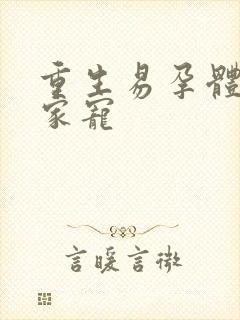 重生易孕體
家寵
言暖言微